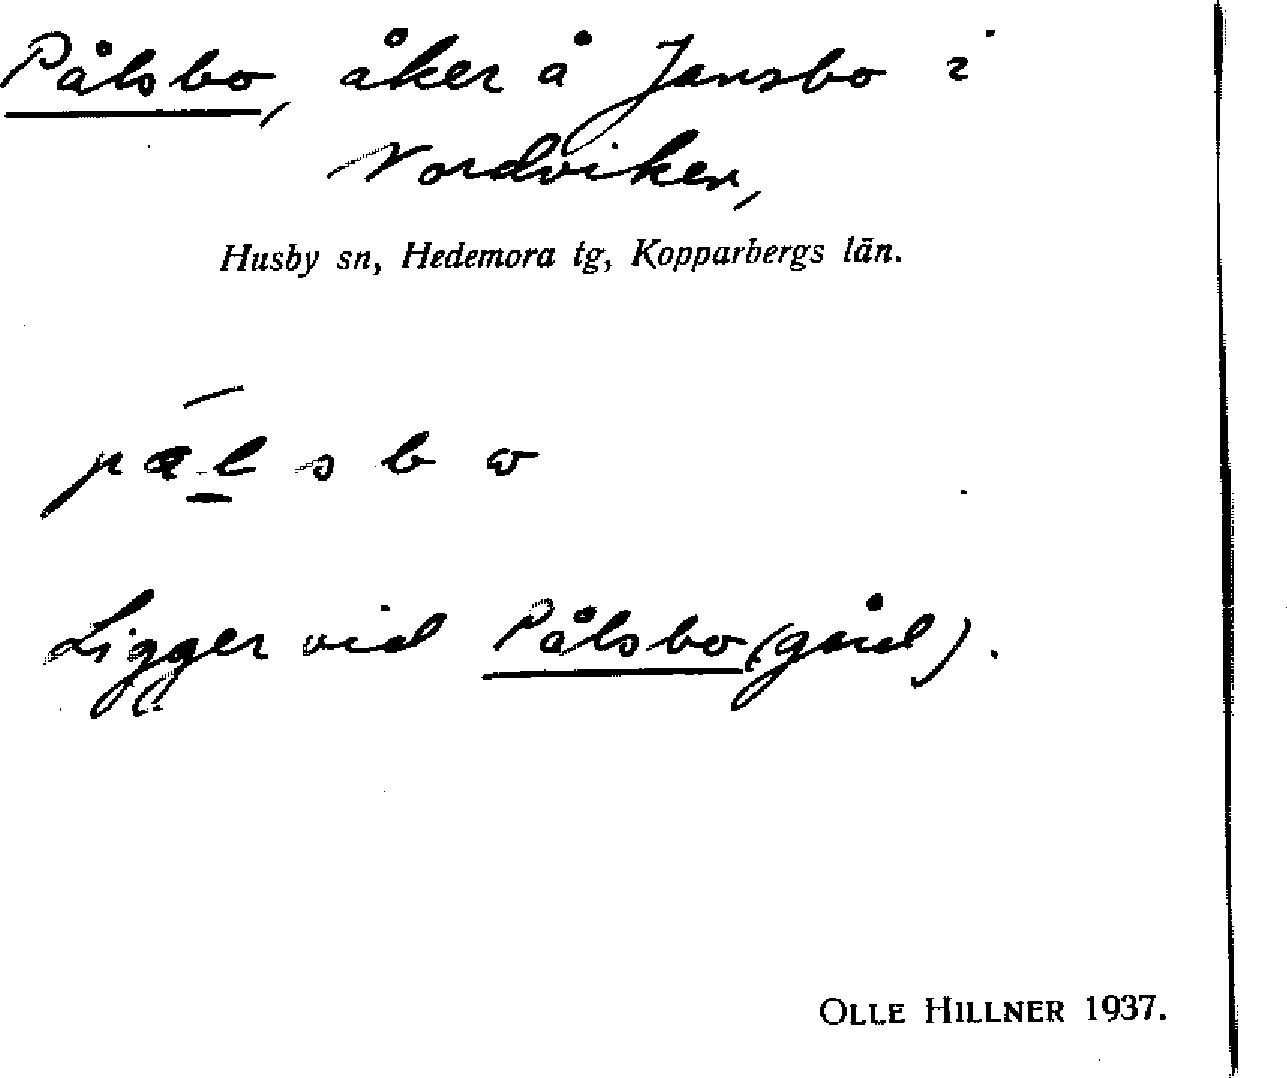 Pålsbo, åker å Jansbo i
Nordviken,
Husby sn, Hedemora tg, Kopparbergs län.
Ligger vid Pålsbo (gård).
OLLE HILLNER 1937.